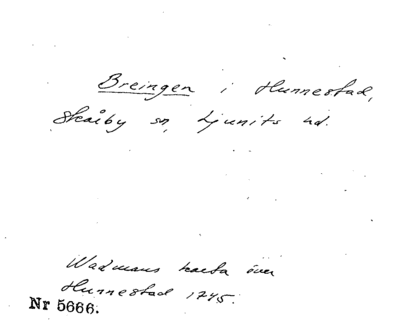 Breingen i Hunnestad,
Skårby sn, Ljunits hd.
Wadmans karta över
Hunnestad 1745.
Nr 5666.